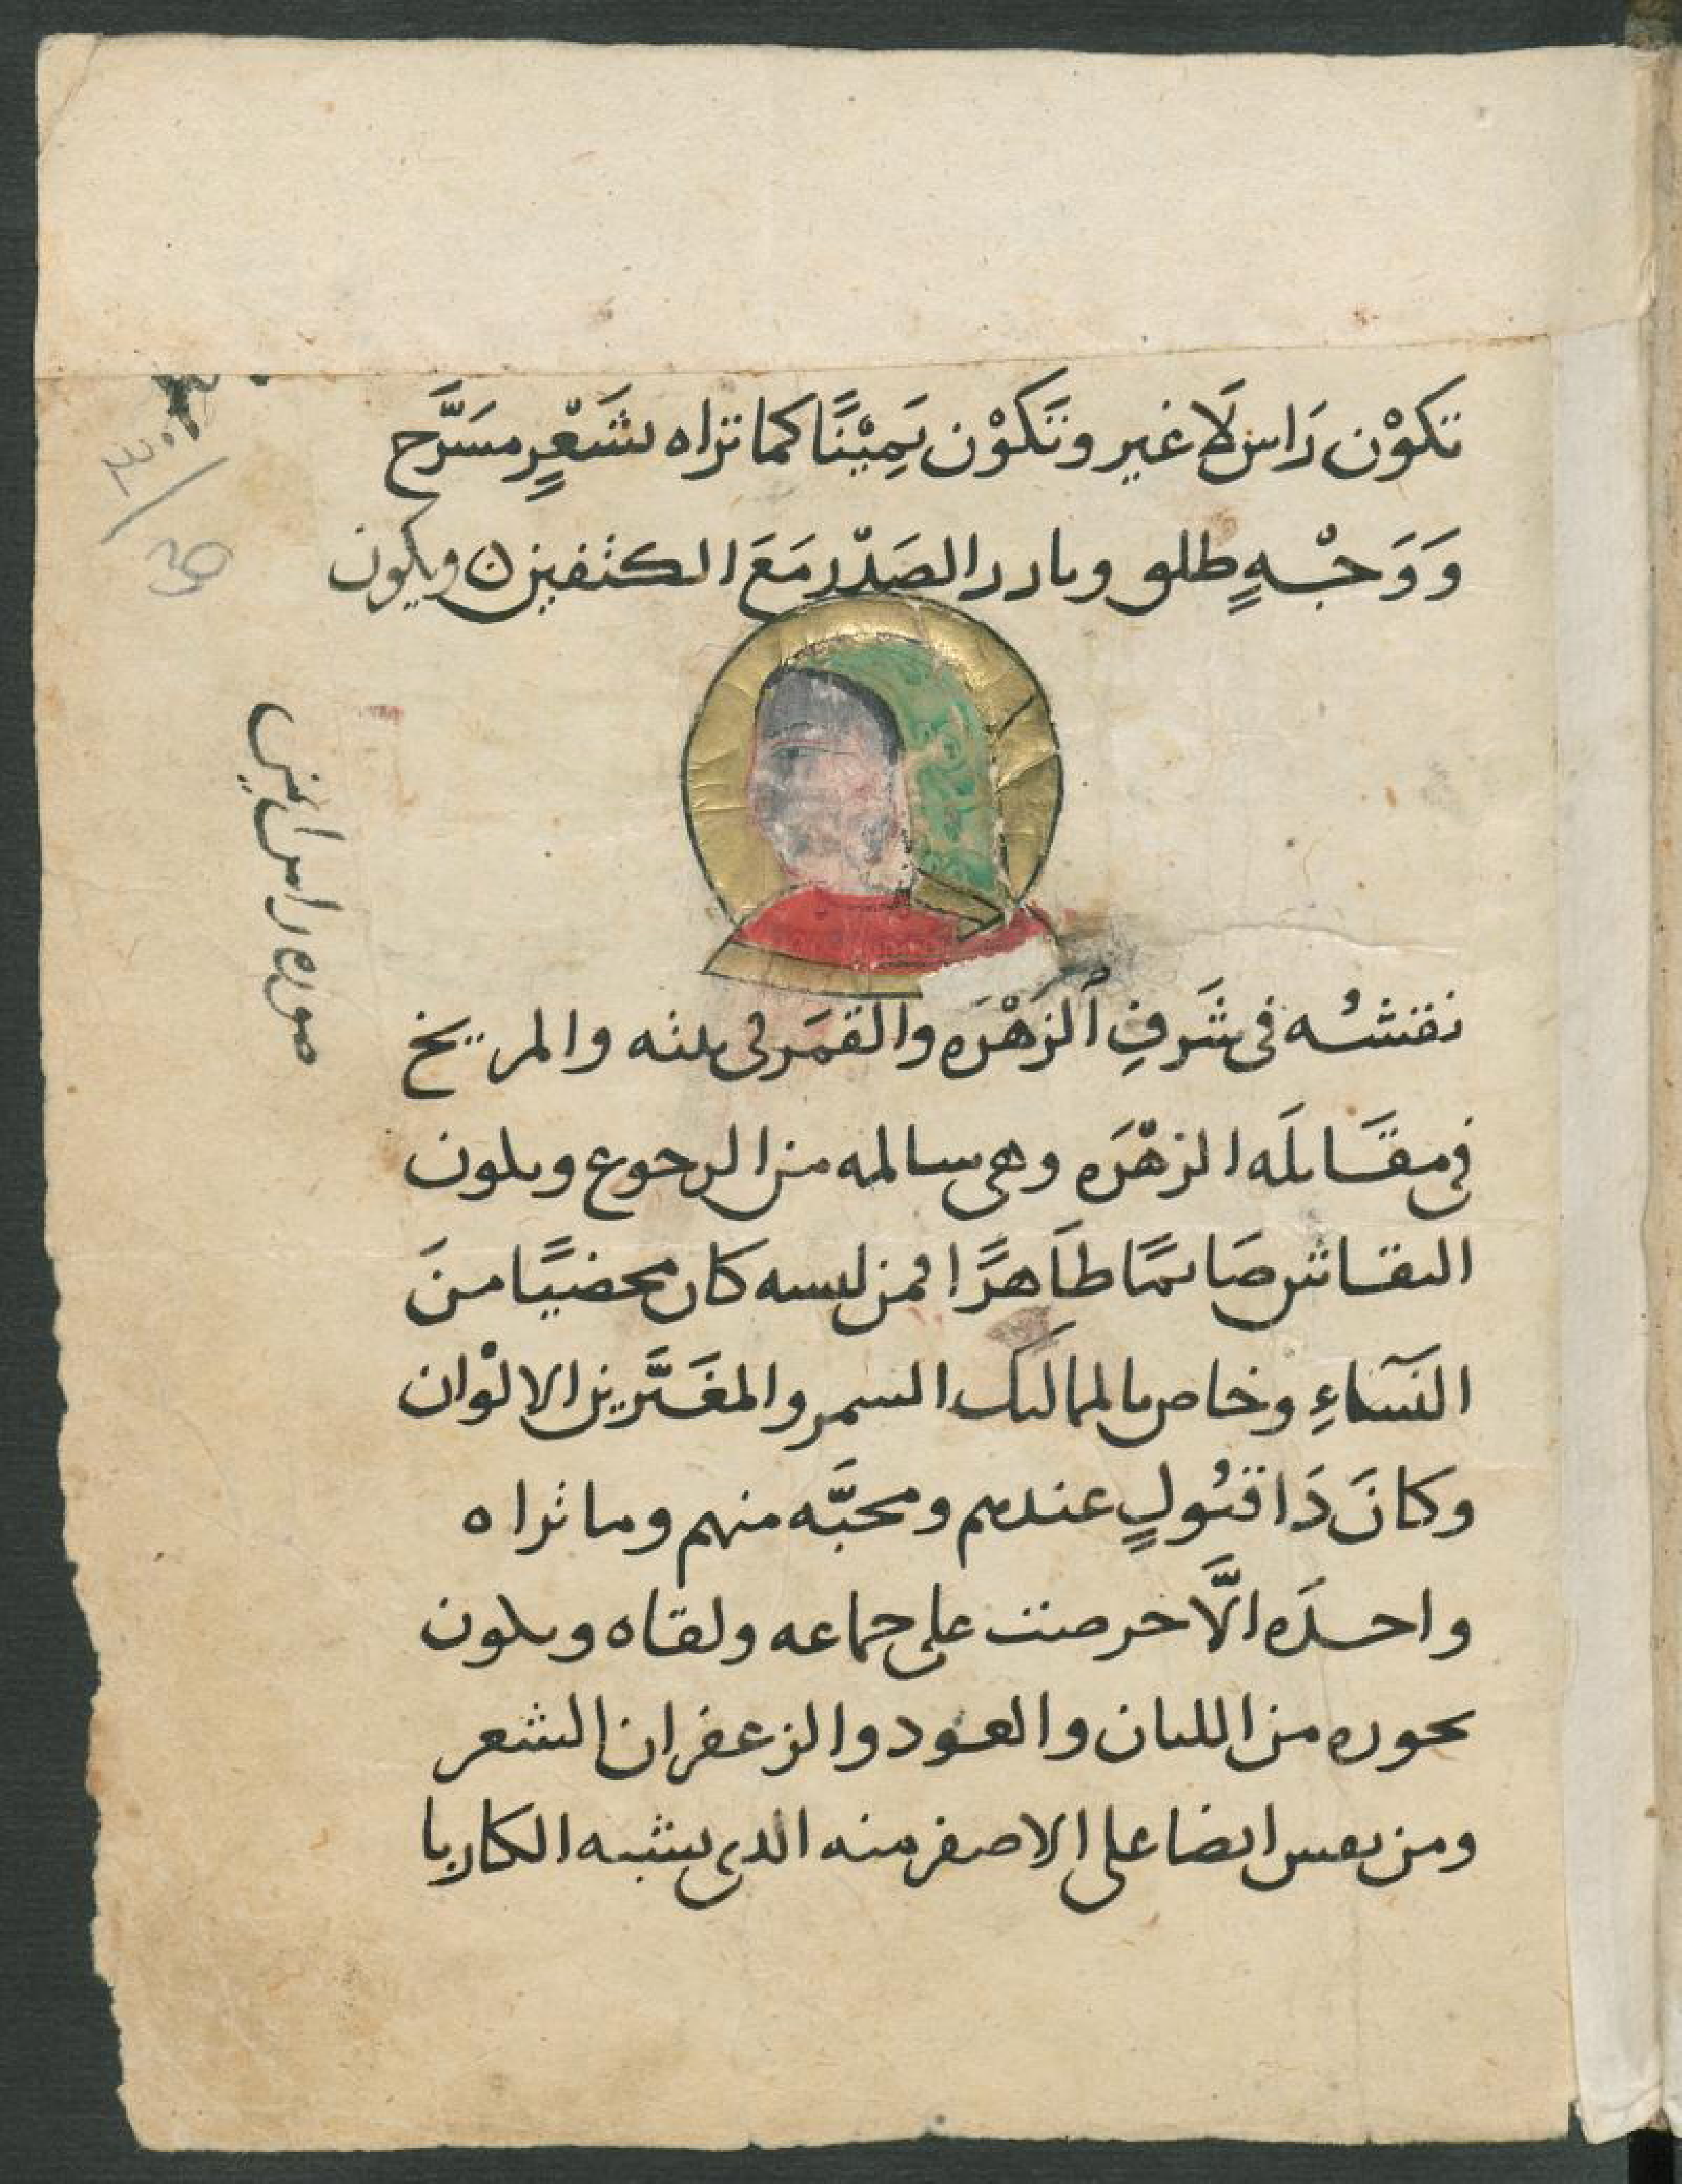 تكوْن رَاس لَا غير وتَكوْن يَمِيْنًا كما تراه بشَعْرٍ مسَرَّح
وَوَجْهٍ طلو وبادر الصَدْر مَعَ الكتفين ويكون
نقشُه فى شَرفِ الزَهْرَه والقمَر فى ثلثه والمريخ
فى مقَابلَه الزهْرَه وهى سالمه من الرجوع ويكون
النقاش صَائمًا طَاهرًا فمن لبسه كان محضيًا منَ
النسَآءِ وخاص بالمماليك السمر والمغَيَّرين الالْوان
وكانَ ذَا قبُولٍ عندهم ومحبَّه منهم وما تراه
واحدَه الَّا حرصت على جماعه ولقاه ويكون
بخوره من اللبان والعود والزعفران الشعر
ومن نقش ايضا على الاصفر منه الدى يشبه الكاربا
صوره راس